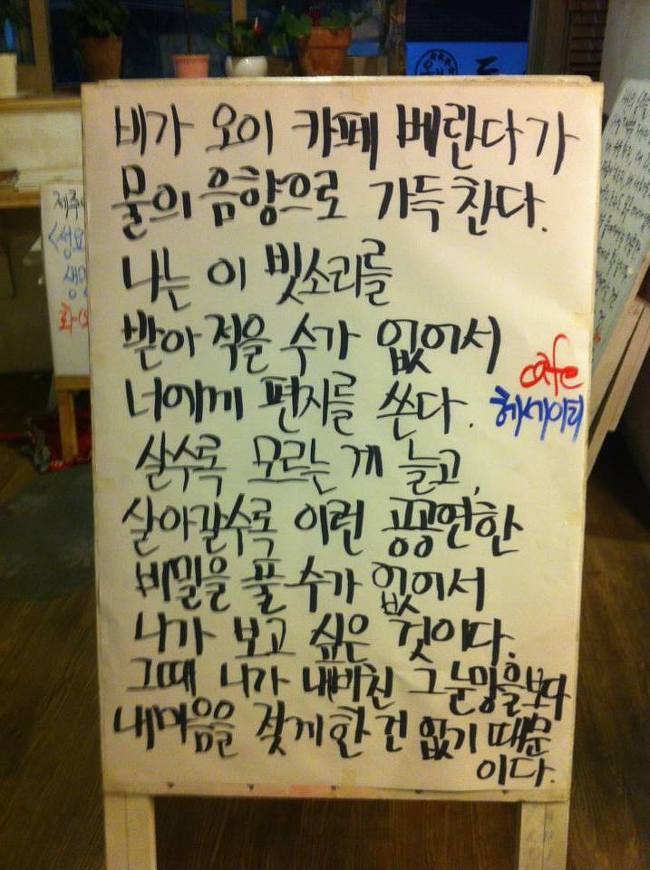 비가 오이 카페 베란다가
물의 음향으로 가득 찬다.
나는 이 빗소리를
받아 적을 수가 없어서
너에게 편지를 쓴다.
cafe
헤세이티
살수록 모르는 게 늘고,
살아갈수록 이런 공공연한
비밀을 풀 수가 없어서
니가 보고 싶은 것이다.
그때 니가 내비친 그 눈망울보다
내마음을 젖게한 건 없기 때문
이다.
제주